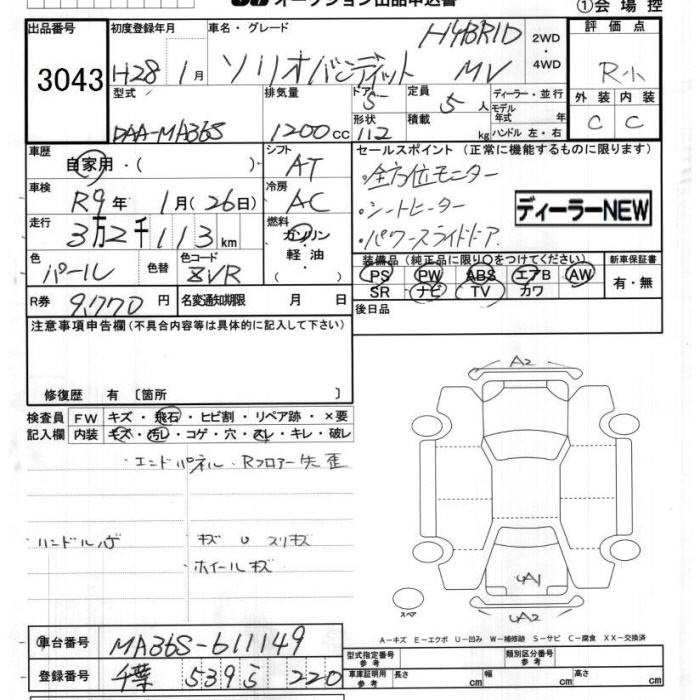 オークション出品申込書
①会場控
出品番号
3043
初度登録年月
H28 1月
車名・グレード
ソリオバンディット HYBRID MV
2WD
・
4WD
評価点
R小
型式
DAA-MA36S
排気量
1200cc
ドア
5
形状
112
定員
5人
積載
kg
ディーラー・並行
モデル年式 年
ハンドル 左・右
外装 内装
C C
車歴
自家用・( )
シフト
AT
車検
R9年 1月(26日)
冷房
AC
走行
3万2千113km
燃料
ガソリン
・
軽油
色
パール
色替
色コード
ZVR
R券
9,770円
名変通知期限 月 日
セールスポイント(正常に機能するものに限ります)
・全方位モニター
・シートヒーター
・パワースライドドア
ディーラーNEW
装備品(純正品に限り○をつけてください)
PS PW ABS エアB AW
SR ナビ TV カワ
新車保証書
有・無
後日品
注意事項申告欄(不具合内容等は具体的に記入して下さい)
修復歴 有〔箇所 〕
検査員 FW キズ・飛石・ヒビ割・リペア跡・×要
記入欄 内装 キズ・汚レ・コゲ・穴・スレ・キレ・破レ
エンドパネル・Rフロアー先歪
キズ U スリキズ
ホイールキズ
A2
UA1
UA2
スペア
A-キズ E-エクボ U-凹み W-補修跡 S-サビ C-腐食 XX-交換済
車台番号 MA36S-611149
登録番号 千葉 539 ら 220
型式指定番号
参考
類別区分番号
参考
車庫証明用
参考
長さ cm 幅 cm 高さ cm